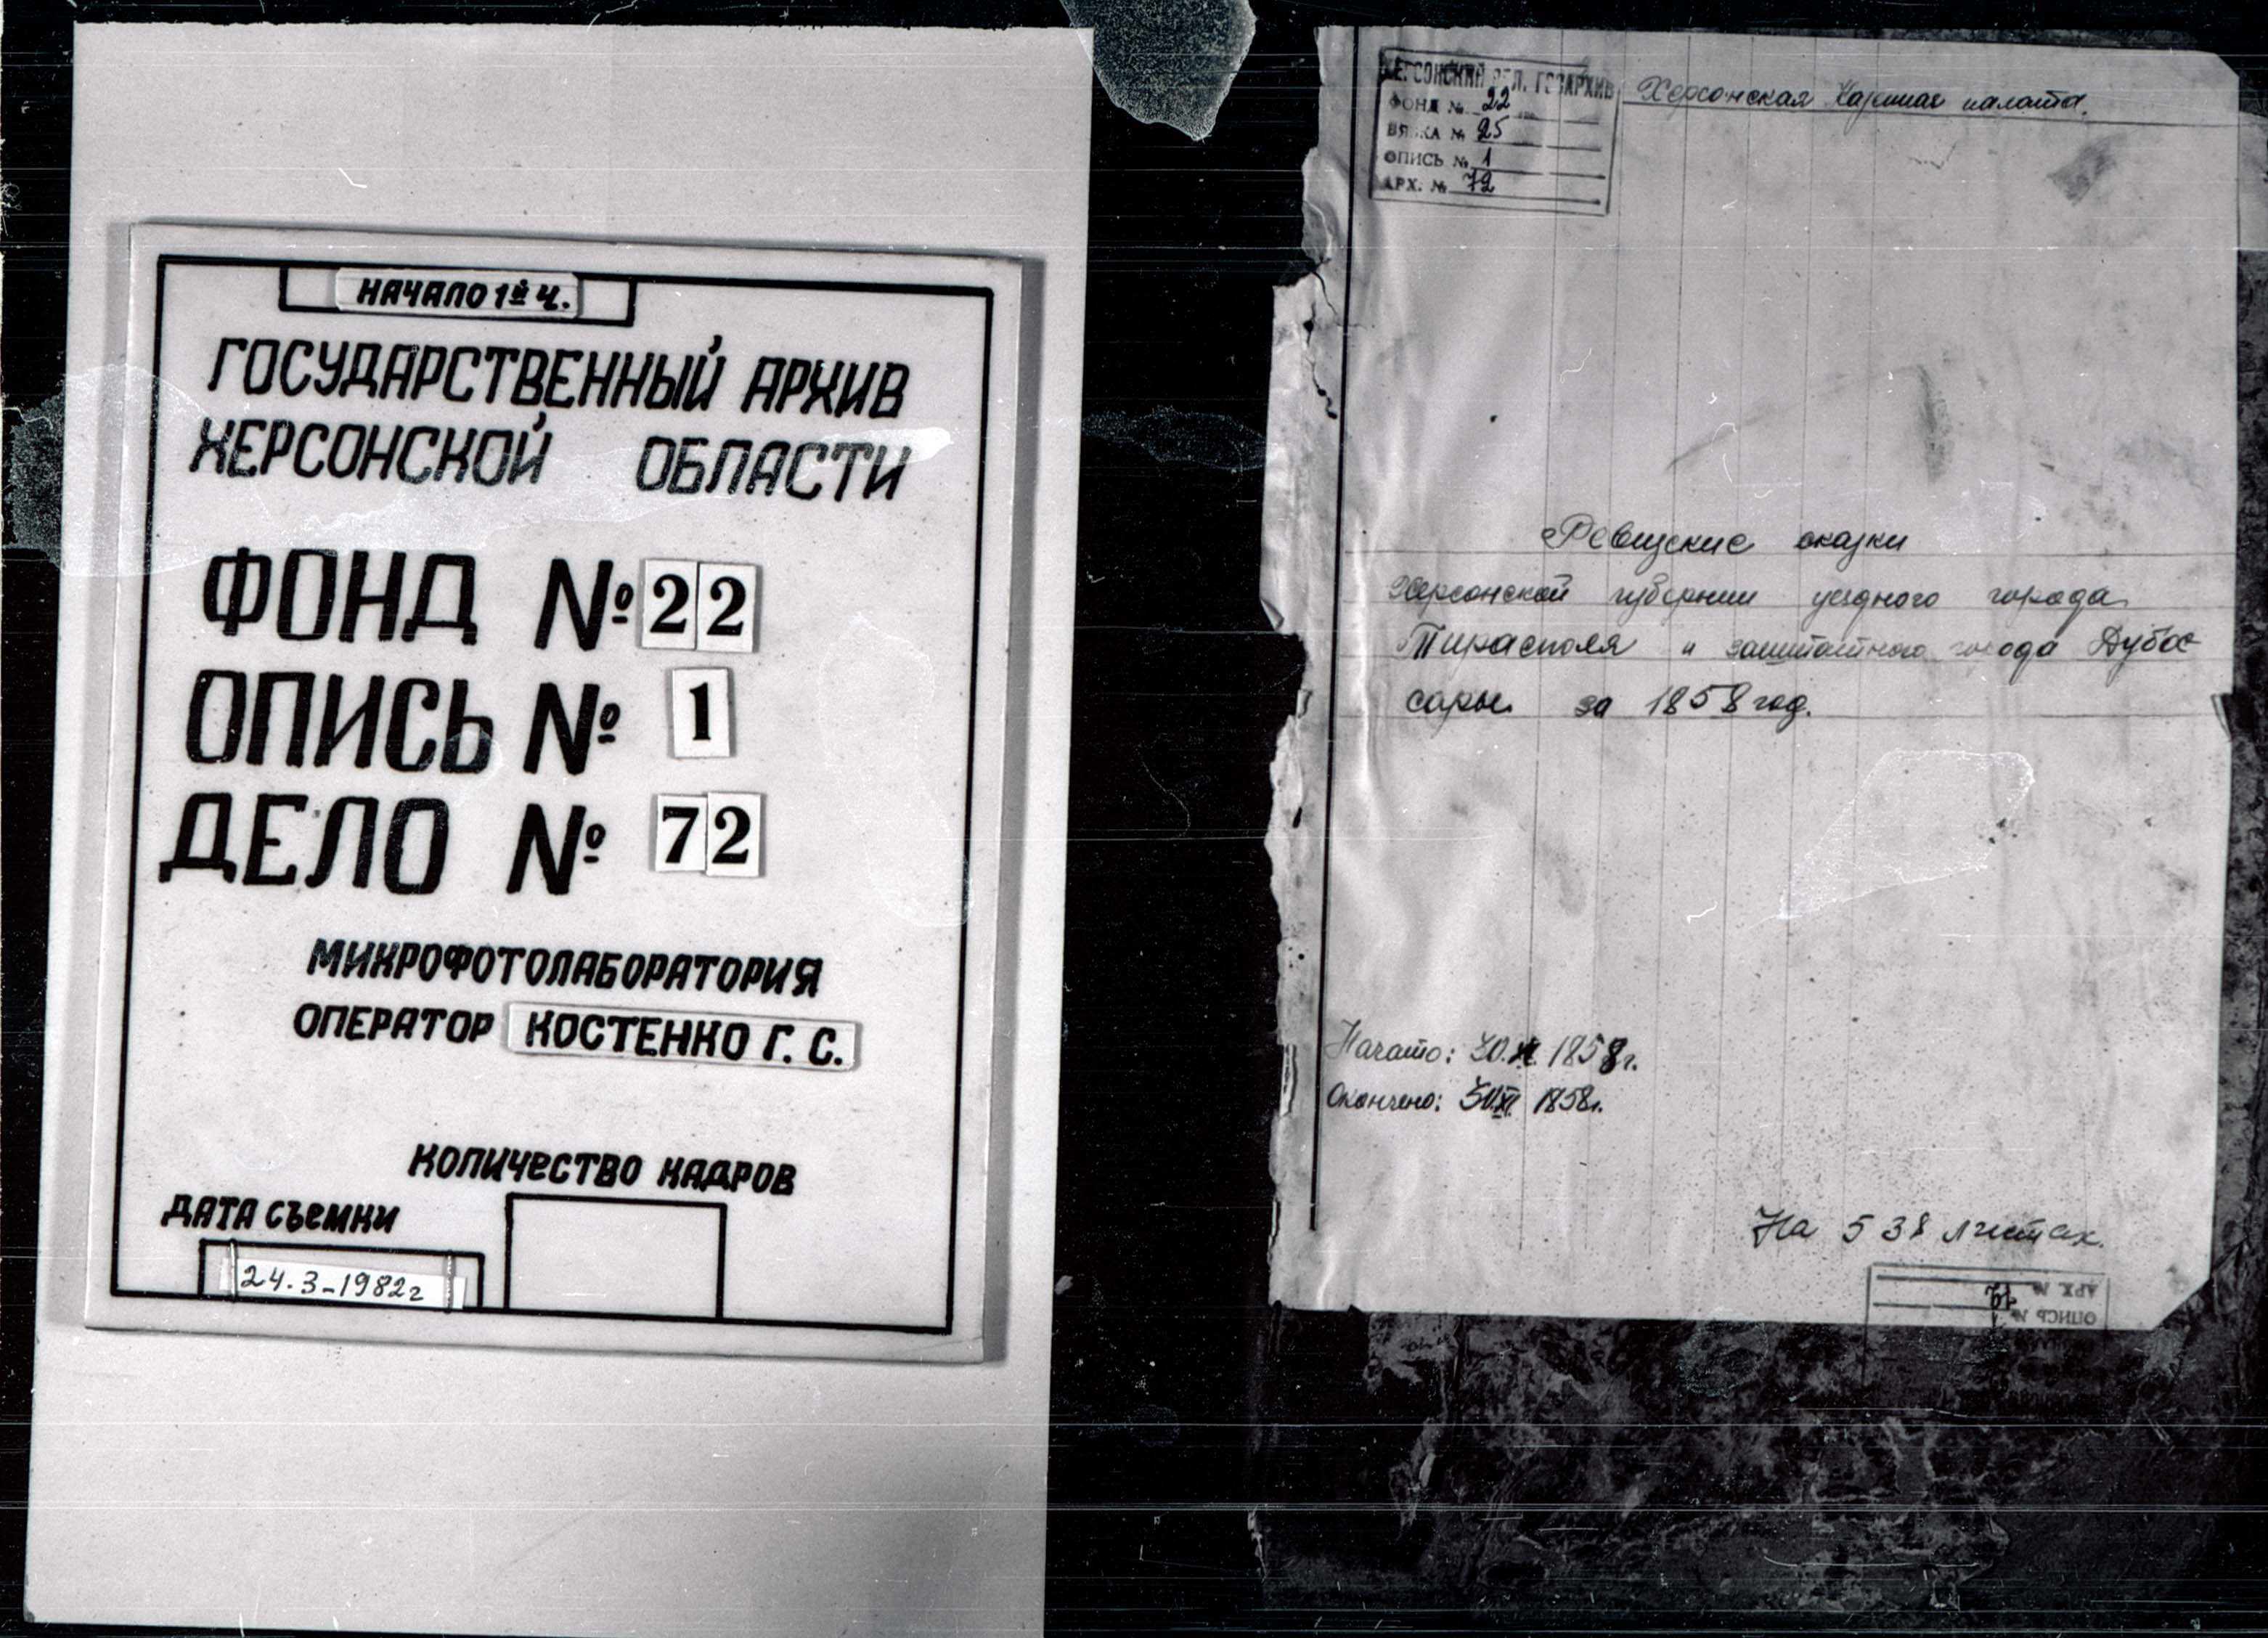 НАЧАЛО 1й Ч.
ГОСУДАРСТВЕННЫЙ АРХИВ
ХЕРСОНСКОЙ ОБЛАСТИ
ФОНД № 22
ОПИСЬ № 1
ДЕЛО № 72
МИКРОФОТОЛАБОРАТОРИЯ
ОПЕРАТОР КОСТЕНКО Г. С.
КОЛИЧЕСТВО КАДРОВ
ДАТА СЪЕМКИ
24.3-1982г
ХЕРСОНСКИЙ ОБЛ. ГОСАРХИВ
ФОНД № 22
ВЯЗКА № 25
ОПИСЬ № 1
АРХ. № 72
Херсонская Казенная палата.
Ревизские сказки
Херсонской губернии уездного города
Тирасполя и заштатного города Дубос
сары за 1858 год.
Начато: 1858г.
Окончено: 1858г.
На 538 листах.
АРХ. №
ОПИСЬ №